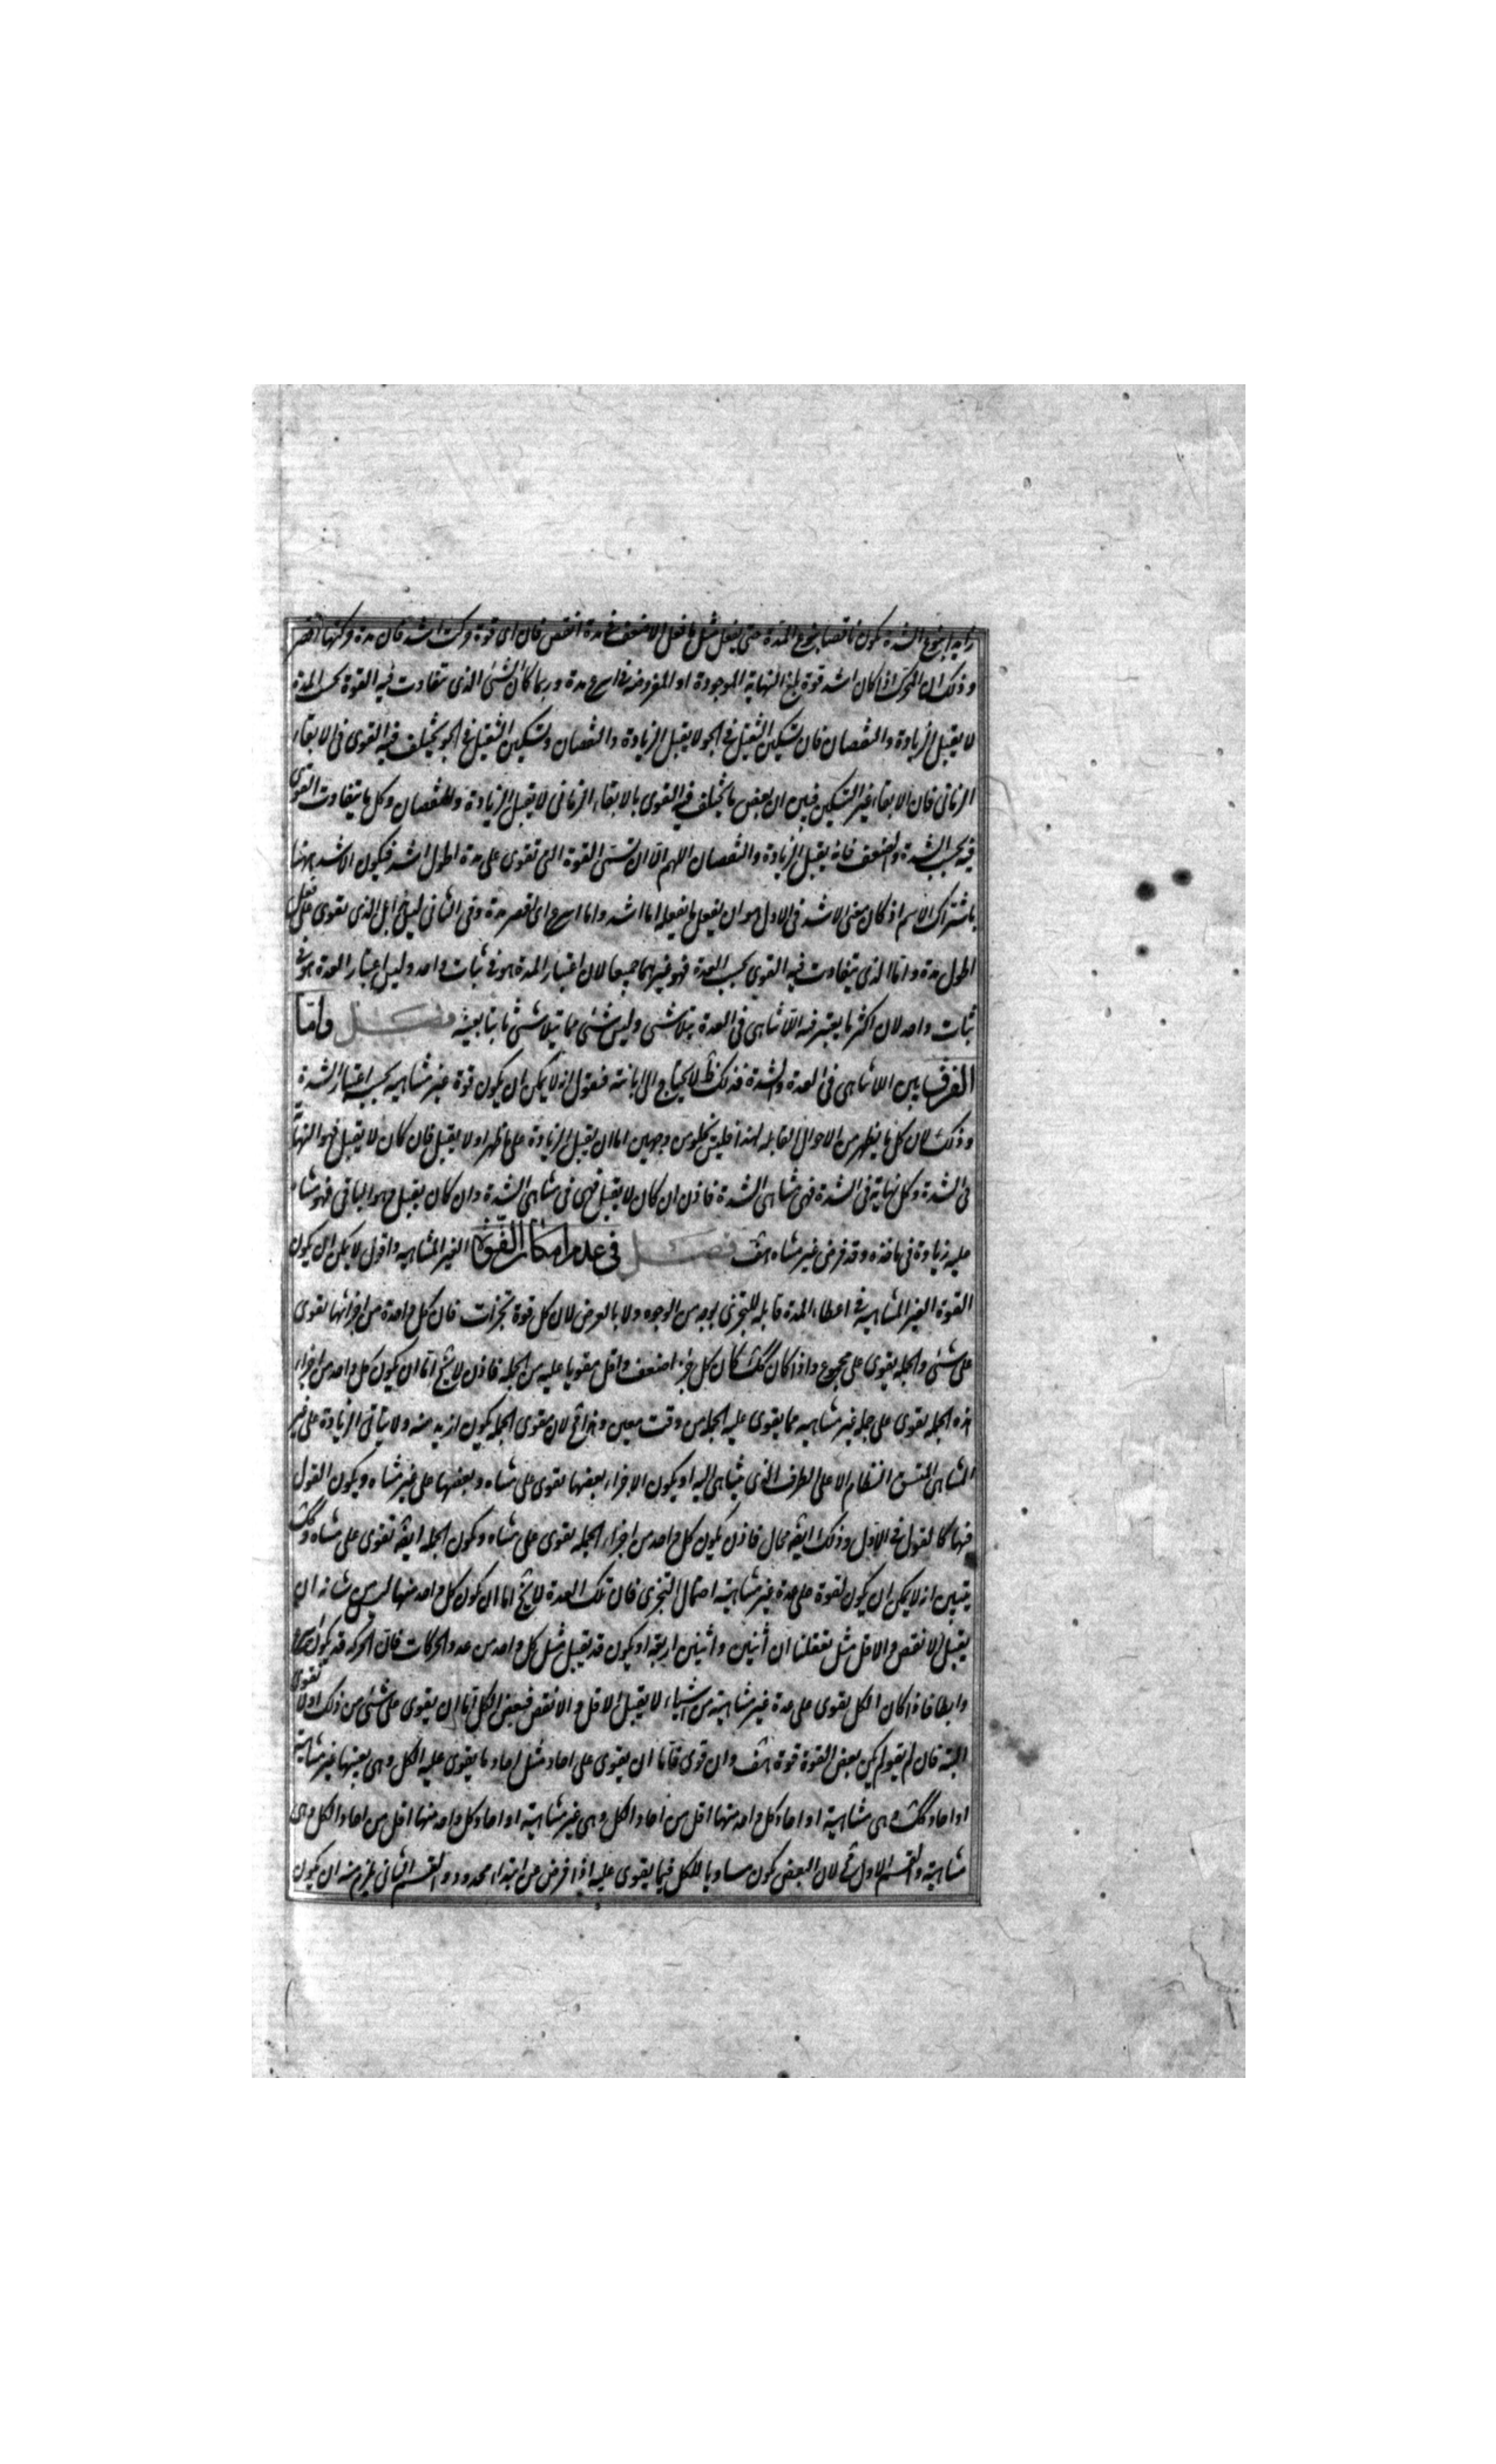 زايدا بنوع الشدة يكون ناقصا بنوع المدة حتى يفعل مثل ما فعل الاضعف في مدة انقص فان اى قوة حركت اشد فان مدة حركتها اقصر
وذلك ان المحرك اذا كان اشد قوة بلغ النهاية الموجودة او المفروضة في اسرع مدة وربما كان الشئ الذى تتفاوت فيه القوة بحسب المدة
لا يقبل الزيادة والنقصان فان تسكين الثقيل في الجو لا يقبل الزيادة والنقصان وتسكين الثقيل في الجو يختلف فيه القوى فى الابقاء
الزمانى فان الابقاء غير التسكين فبين ان بعض ما يختلف فيه القوى بالابقاء الزمانى لا يقبل الزيادة والنقصان وكل ما يتفاوت القوى
فيه بحسب الشدة والضعف فانه يقبل الزيادة والنقصان اللهم الا ان تسمى القوة التى تقوى على مدة اطول اشد فيكون الاشد ههنا
باشتراك الاسم اذ كان معنى الاشد فى الاول هو ان يفعل ما يفعله اما اشد واما اسرع اى اقصر مدة وفى الثانى ليس بل الذى يقوى على فعل
اطول مدة واما الذى يتفاوت فيه القوى بحسب العدة فهو غيرهما جميعا لان اعتبار المدة هو في ثبات واحد وليس اعتبار العدة هو في
ثبات واحد لان اكثر ما يعتبر فيه اللاتناهى فى العدة يتلاشى وليس شئ مما يتلاشى ثابتا بعينه فصل واما
الفرق بين اللاتناهى فى العدة والشدة فذلك ظ لا يحتاج الى ابانته فنقول انه لا يمكن ان يكون قوة غير متناهيه بحسب اعتبار الشدة
وذلك لان كل ما يظهر من الاحوال القابله لهذا فليس يخلو من وجهين اما ان يقبل الزيادة على ما ظهر او لا يقبل فان كان لا يقبل فهو النهاية
فى الشدة وكل نهاية فى الشدة فهى متناهى الشدة فاذن ان كان لا يقبل فهى فى متناهى الشدة وان كان يقبل فهو الباقى فهو متناه
عليه زيادة فى ماخذه وقد فرض غير متناه هف فصل فى عدم امكان القوة الغير المتناهيه واقول لا يمكن ان يكون
القوة الغير المتناهيه في اعطاء المدة قابله للتجزى بوجه من الوجوه ولا بالعرض لان كل قوة تجزات فان كل واحدة من اجزائها تقوى
على شئ والجمله يقوى على مجموع واذا كان كك كان كل جزء اضعف واقل مقويا عليه من الجمله فاذن لا يخ اما ان يكون كل واحد من اجزاء
هذه الجمله يقوى على جمله غير متناهيه مما يقوى عليه الجمله من وقت معين وهذا مح لان مقوى الجمله يكون ازيد منه ولا يتاتى الزيادة على غير
المتناهى المتسق النظام الا على الطرف الذى يتناهى اليه او يكون الاجزاء بعضها تقوى على متناه وبعضها على غير متناه ويكون القول
فيها كالقول في الاول وذلك ايضا محال فاذن يكون كل واحد من اجزاء الجمله يقوى على متناه ويكون الجمله ايضا تقوى على متناه وكك
يتبين انه لا يمكن ان يكون لقوة على عدة غير متناهية احتمال التجزى فان تلك العدة لا يخ اما ان يكون كل واحد منها ليس من شانه ان
يقبل الانقص والاقل مثل تعقلنا ان اثنين واثنين اربعة او يكون قد يقبل مثل كل واحد من عدد الحركات فان الحركه قد يكون اسرع
وابطا فاذا كان الكل يقوى على عدة غير متناهية من اشياء لا يقبل الاقل والانقص فبعض الكل اما ان يقوى على شئ من ذلك او لا تقوى
البتة فان لم يقو لم يكن بعض القوة قوة هف وان قوى فاما ان يقوى على احاد مثل احاد ما يقوى عليه الكل وهى بعينها غير متناهية
او احاد كك وهى متناهية او احاد كل واحد منها اقل من احاد الكل وهى غير متناهية او احاد كل واحد منها اقل من احاد الكل وهى
متناهية والقسم الاول مح لان البعض يكون مساويا للكل فيما يقوى عليه اذا فرض من ابتداء محدود والقسم الثانى يلزم منه ان يكون